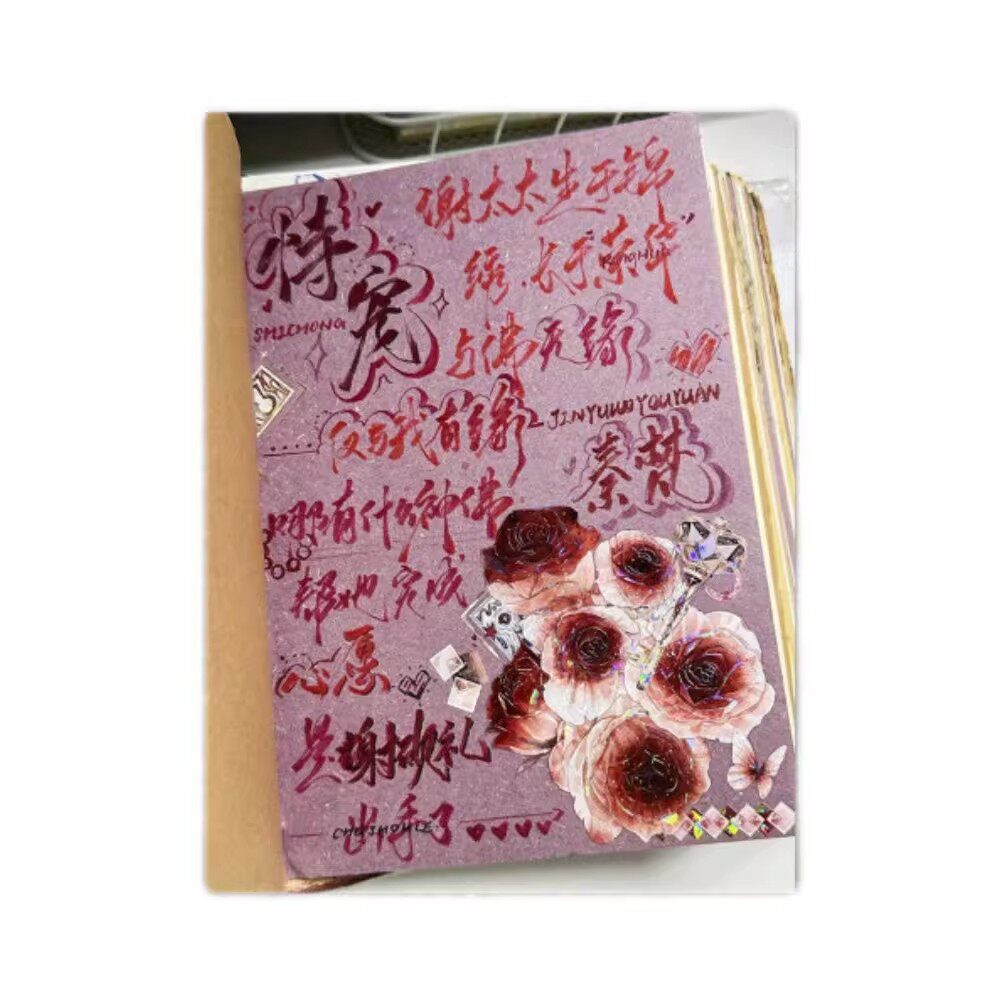 恃宠
SHICHONG
谢太太生于锦
绣.长于荣华"
RONGHUA
与佛无缘
仅与我有缘
JINYUWOYOUYUAN
秦梵
哪有什么神佛
帮她完成
心愿
是谢砚礼
出手了
CHUSHOULE